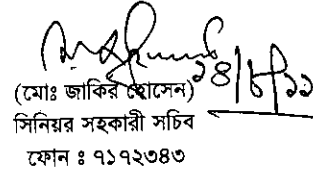 ১৪/৮/১১
(মোঃ জাকির হোসেন)
সিনিয়র সহকারী সচিব
ফোন ঃ ৭১৭২৩৪৩